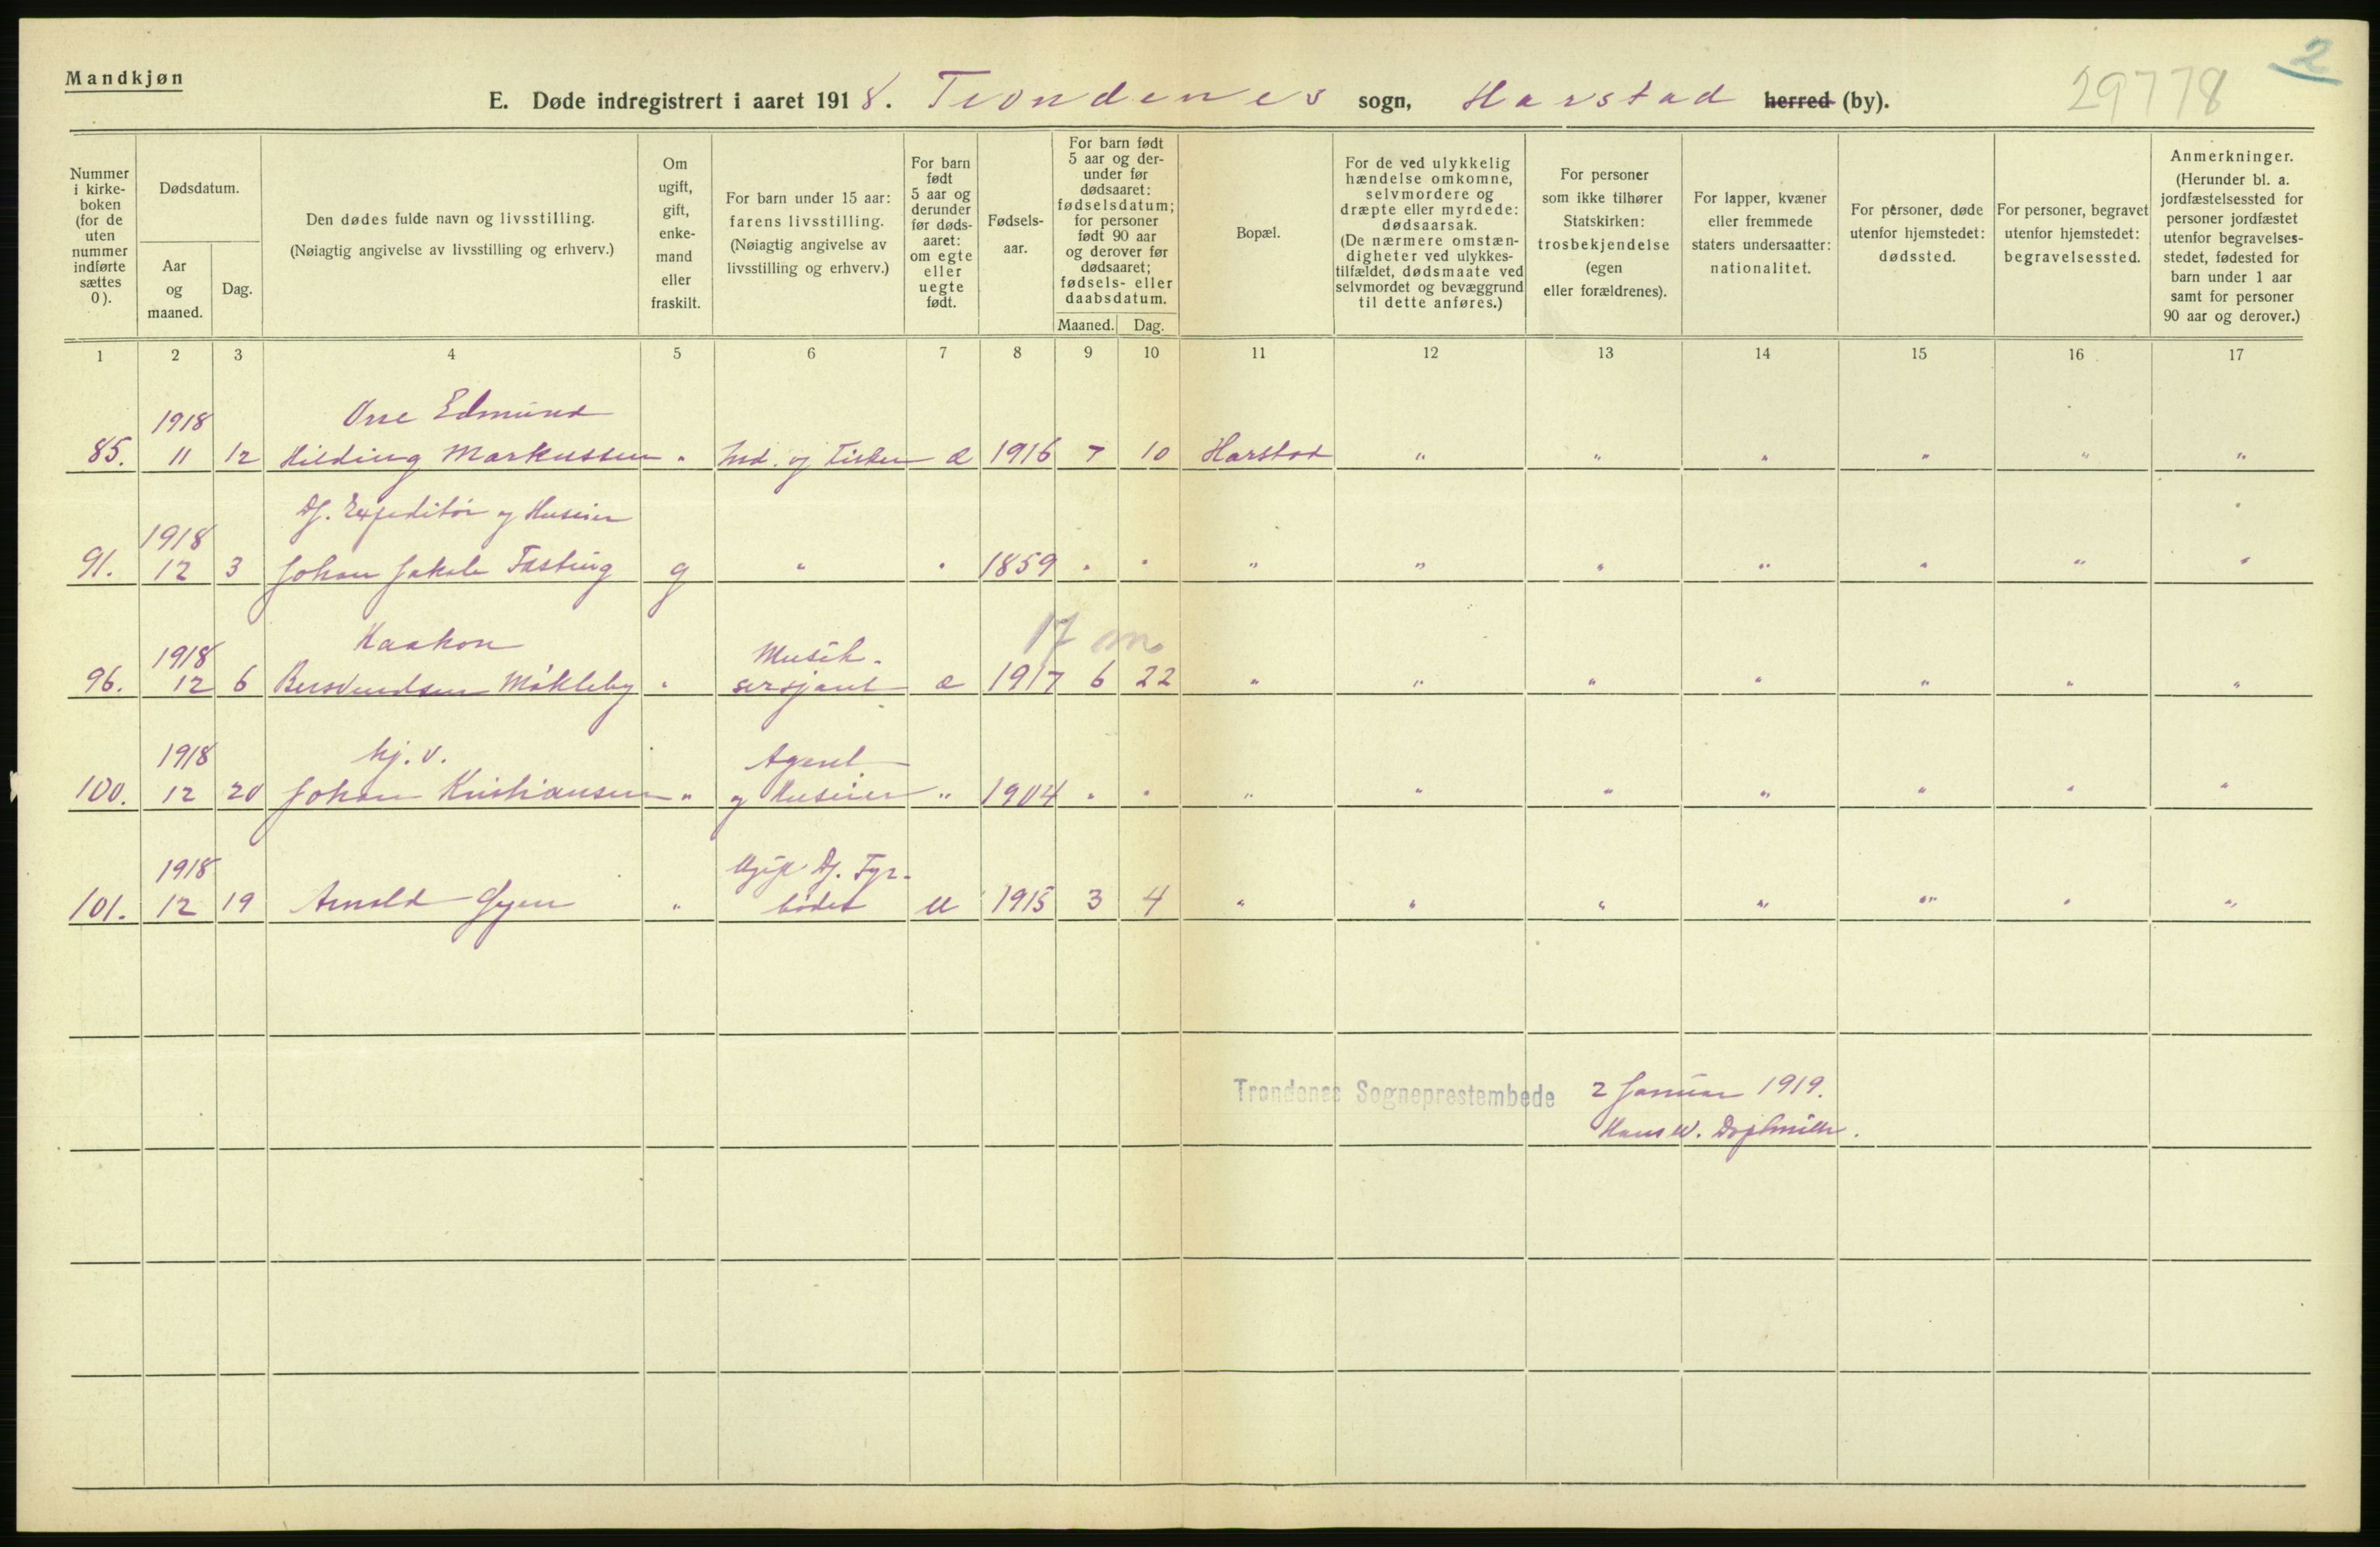 Mandkjøn
2
29778
E. Døde indregistrert i aaret 1918. Trondenes sogn, Harstad herred (by).
Nummer i kirke-boken (for de uten nummer indførte sættes 0).
Dødsdatum.
Aar og maaned.
Dag.
Den dødes fulde navn og livsstilling.
(Nøiagtig angivelse av livsstilling og erhverv.)
Om ugift, gift, enke-mand eller fraskilt.
For barn under 15 aar: farens livsstilling.
(Nøiagtig angivelse av livsstilling og erhverv.)
For barn født 5 aar og derunder før døds-aaret: om egte eller uegte født.
Fødsels-aar.
For barn født 5 aar og der-under før dødsaaret: fødselsdatum; for personer født 90 aar og derover før dødsaaret; fødsels- eller daabsdatum.
Maaned. Dag.
Bopæl.
For de ved ulykkelig hændelse omkomne, selvmordere og dræpte eller myrdede: dødsaarsak.
(De nærmere omstæn-digheter ved ulykkes-tilfældet, dødsmaate ved selvmordet og bevæggrund til dette anføres.)
For personer som ikke tilhører Statskirken: trosbekjendelse (egen eller forældrenes).
For lapper, kvæner eller fremmede staters undersaatter: nationalitet.
For personer, døde utenfor hjemstedet: dødssted.
For personer, begravet utenfor hjemstedet: begravelsessted.
Anmerkninger.
(Herunder bl. a. jordfæstelsessted for personer jordfæstet utenfor begravelses-stedet, fødested for barn under 1 aar samt for personer 90 aar og derover.)
1 2 3 4 5 6 7 8 9 10 11 12 13 14 15 16 17
1918 Edmund
85. 11 12 Hilding Markussen " Ind. og Fisker e 1916 7 10 Harstad " " " " " "
1918 Df. Expeditør og Huseier
91. 12 3 Johan Jakob Fasting g " " 1859 " " " " " " " " "
17 m
1918 Haakon Musik-
96. 12 6 Møkleby " sersjant e 1917 6 22 " " " " " " "
1918 hj. v. Agent
100. 12 20 Johan Kristiansen " og Huseier " 1904 " " " " " " " " "
1918 Ugift Df. Fyr-
101. 12 19 Arnold " bøder u 1915 3 4 " " " " " " "
Trondenes Sogneprestembede 2 Januar 1919.
Hans W.